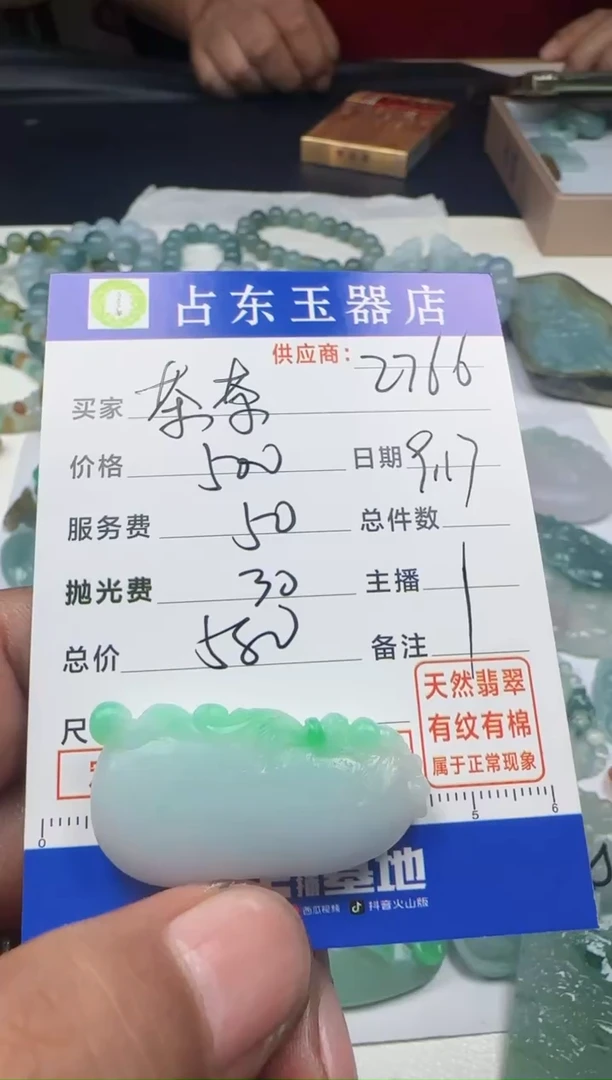 占东玉器店
供应商: 2766
买家 茶茶
价格 500 日期 9.17
服务费 50 总件数
抛光费 30 主播
总价 580 备注
天然翡翠
有纹有棉
属于正常现象
尺
0 5 6
基地
西瓜视频 抖音火山版